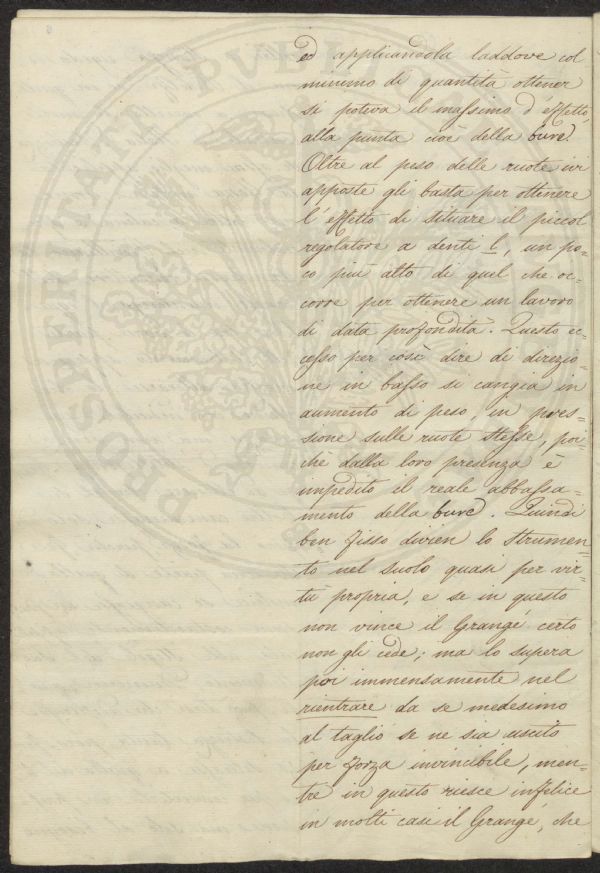 ed applicandola laddove col
minimo di quantità ottener
si poteva il massimo d'effetto,
alla punta cioè della bure.
Oltre al peso delle ruote ivi
apposte gli basta per ottenere
l'effetto di situare il piccol
regolatore a denti l, un po=
co più alto di quel che oc=
corre per ottenere un lavoro
di data profondità. Questo ec=
cesso per così dire di direzio=
ne in basso si cangia in
aumento di peso, in pres=
sione sulle ruote stesse, poi=
chè dalla loro presenza è
impedito il reale abbassa=
mento della bure. Quindi
ben fisso divien lo strumen=
to nel suolo quasi per vir=
tù propria, e se in questo
non vince il Grangé certo
non gli cede; ma lo supera
poi immensamente nel
rientrare da se medesimo
al taglio se ne sia uscito
per forza invincibile, men=
tre in questo riesce infelice
in molti casi il Grangé, che
PROSPERITATI PVBLI